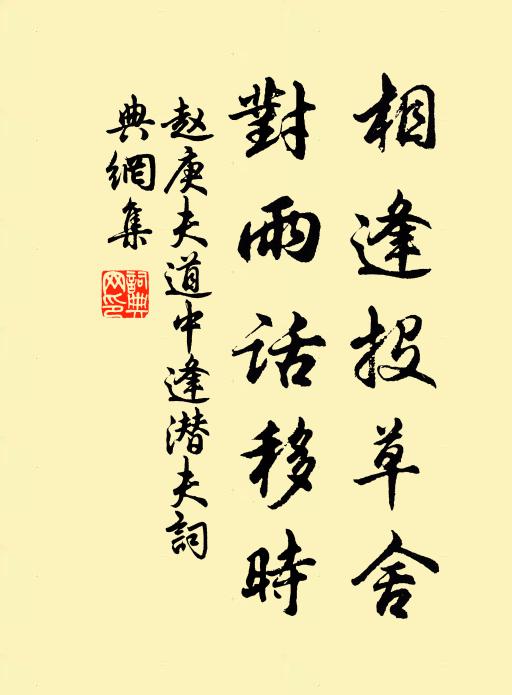 相逢投草舍
對雨话移時
赵庚夫道中逢潜夫詞
典網集
詞典网印